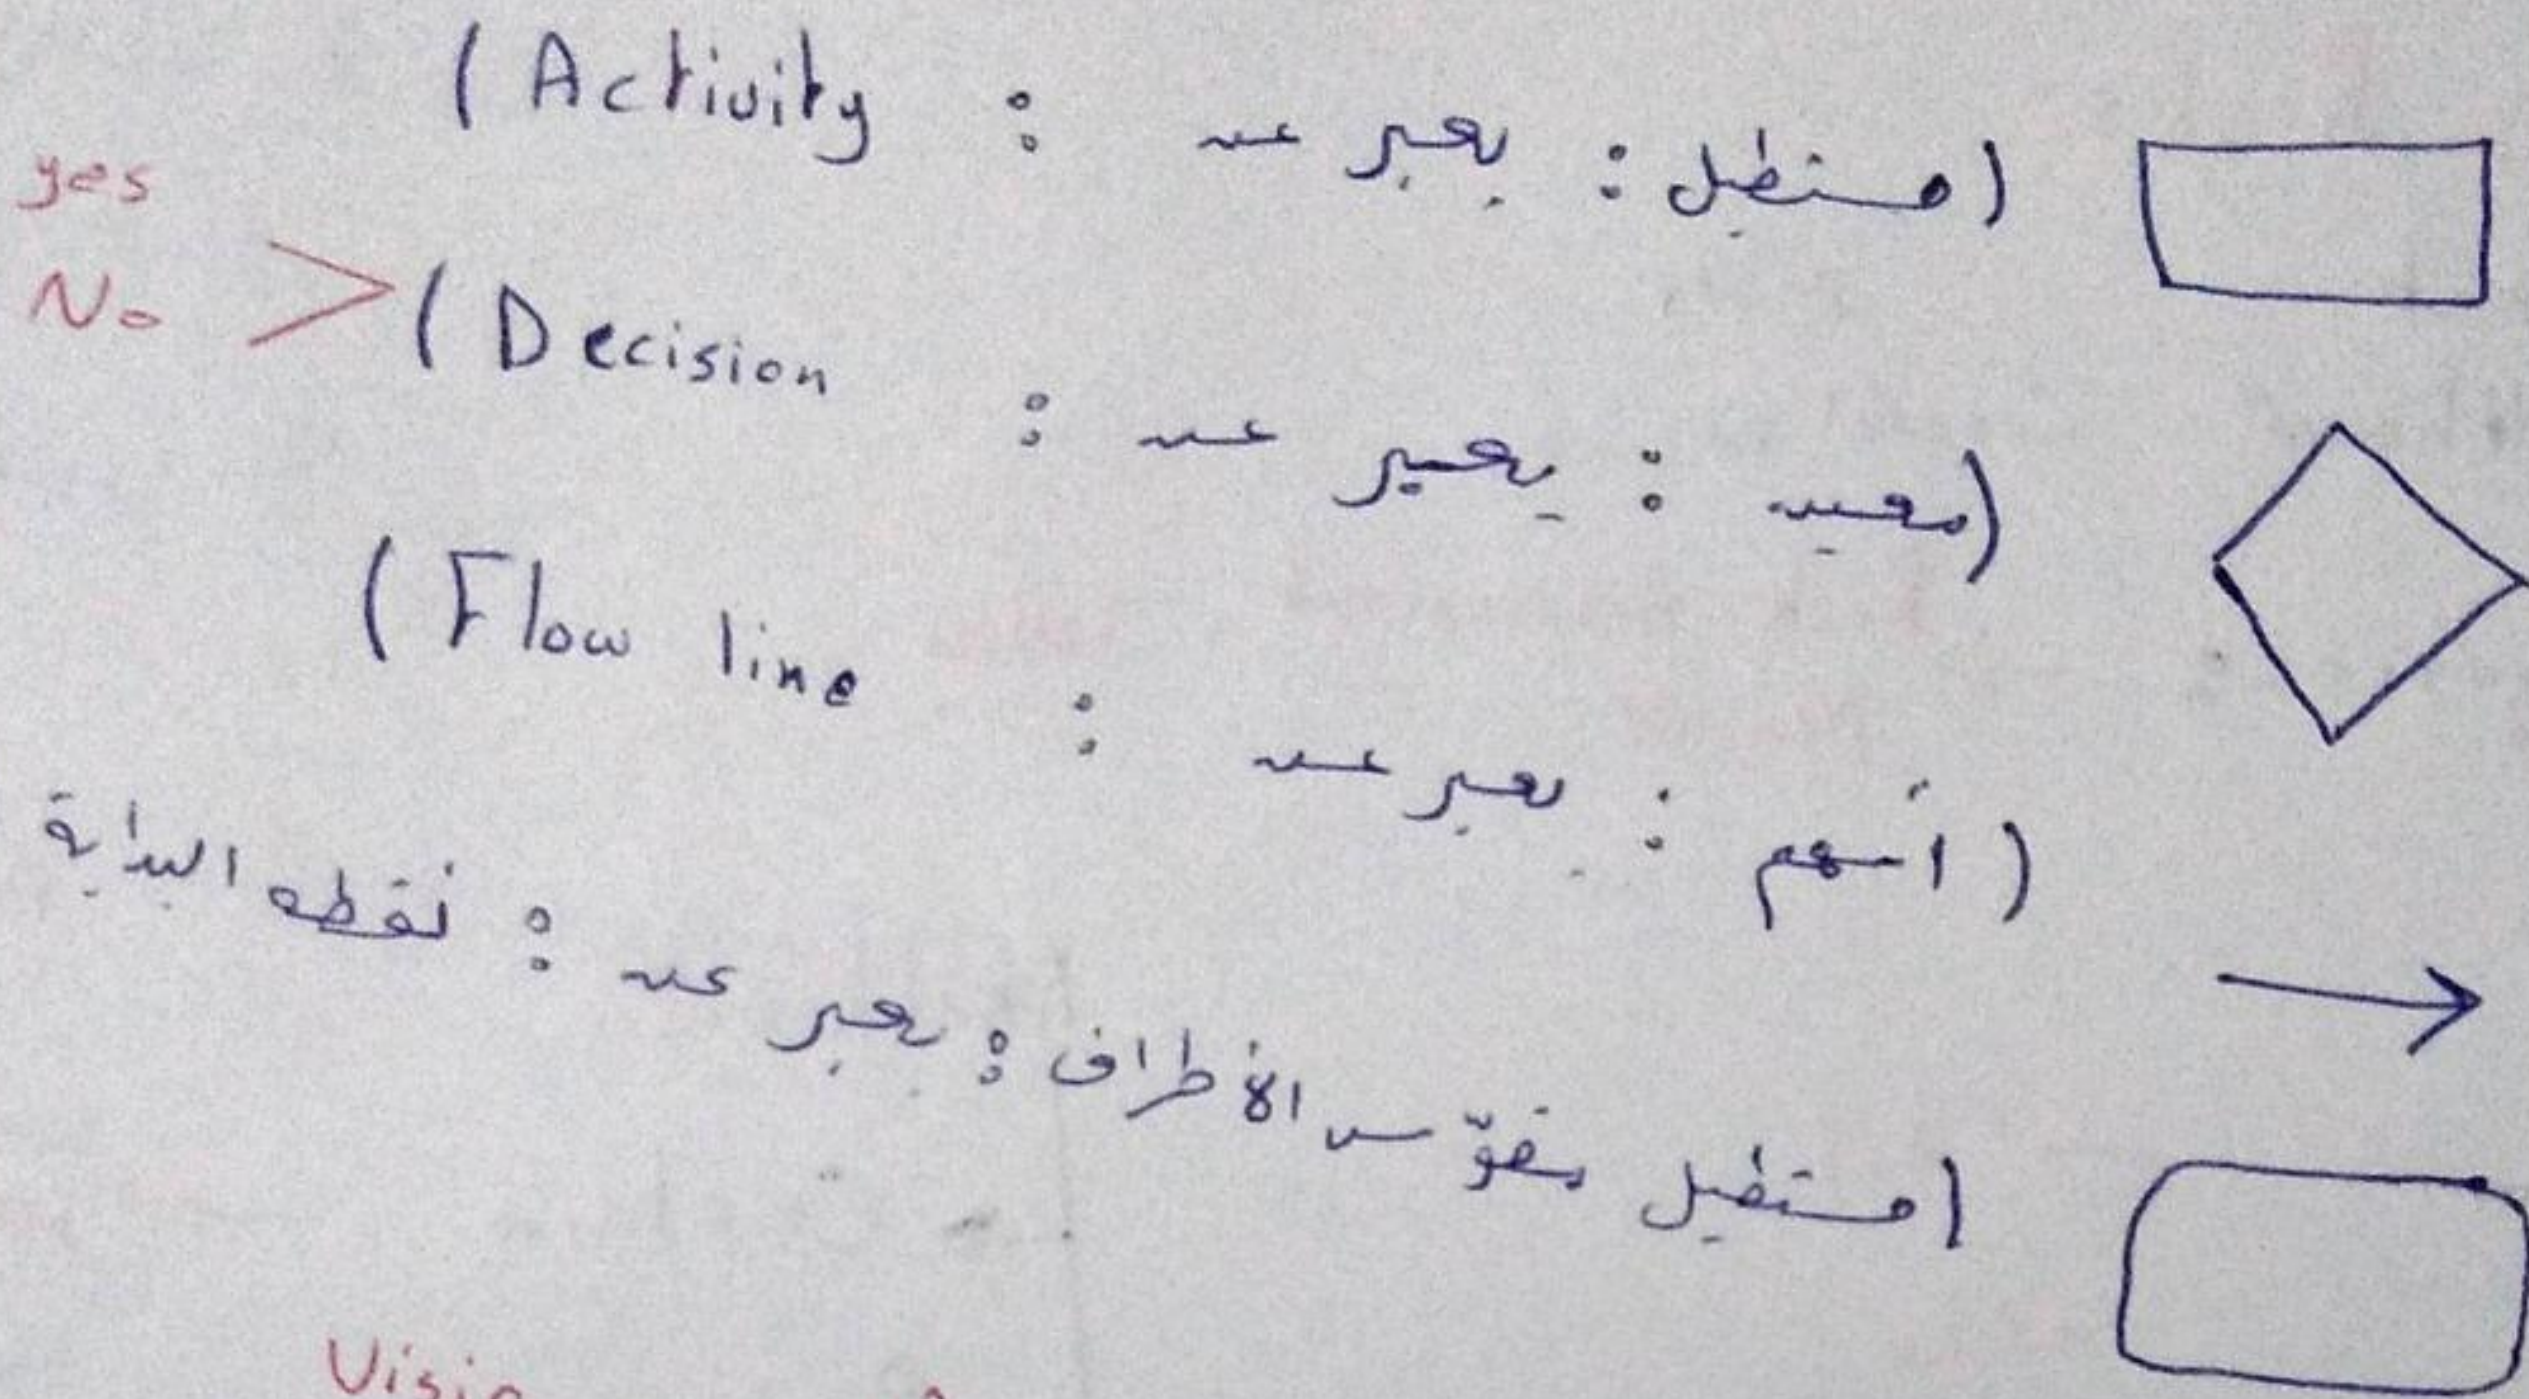 (مستطيل : يعبر عن : Activity)
(معين : يعبر عن : Decision)
yes
No
(أسهم : يعبر عن : Flow line)
(مستطيل مقوّس الأطراف : يعبر عن : نقطه البداية
Visio